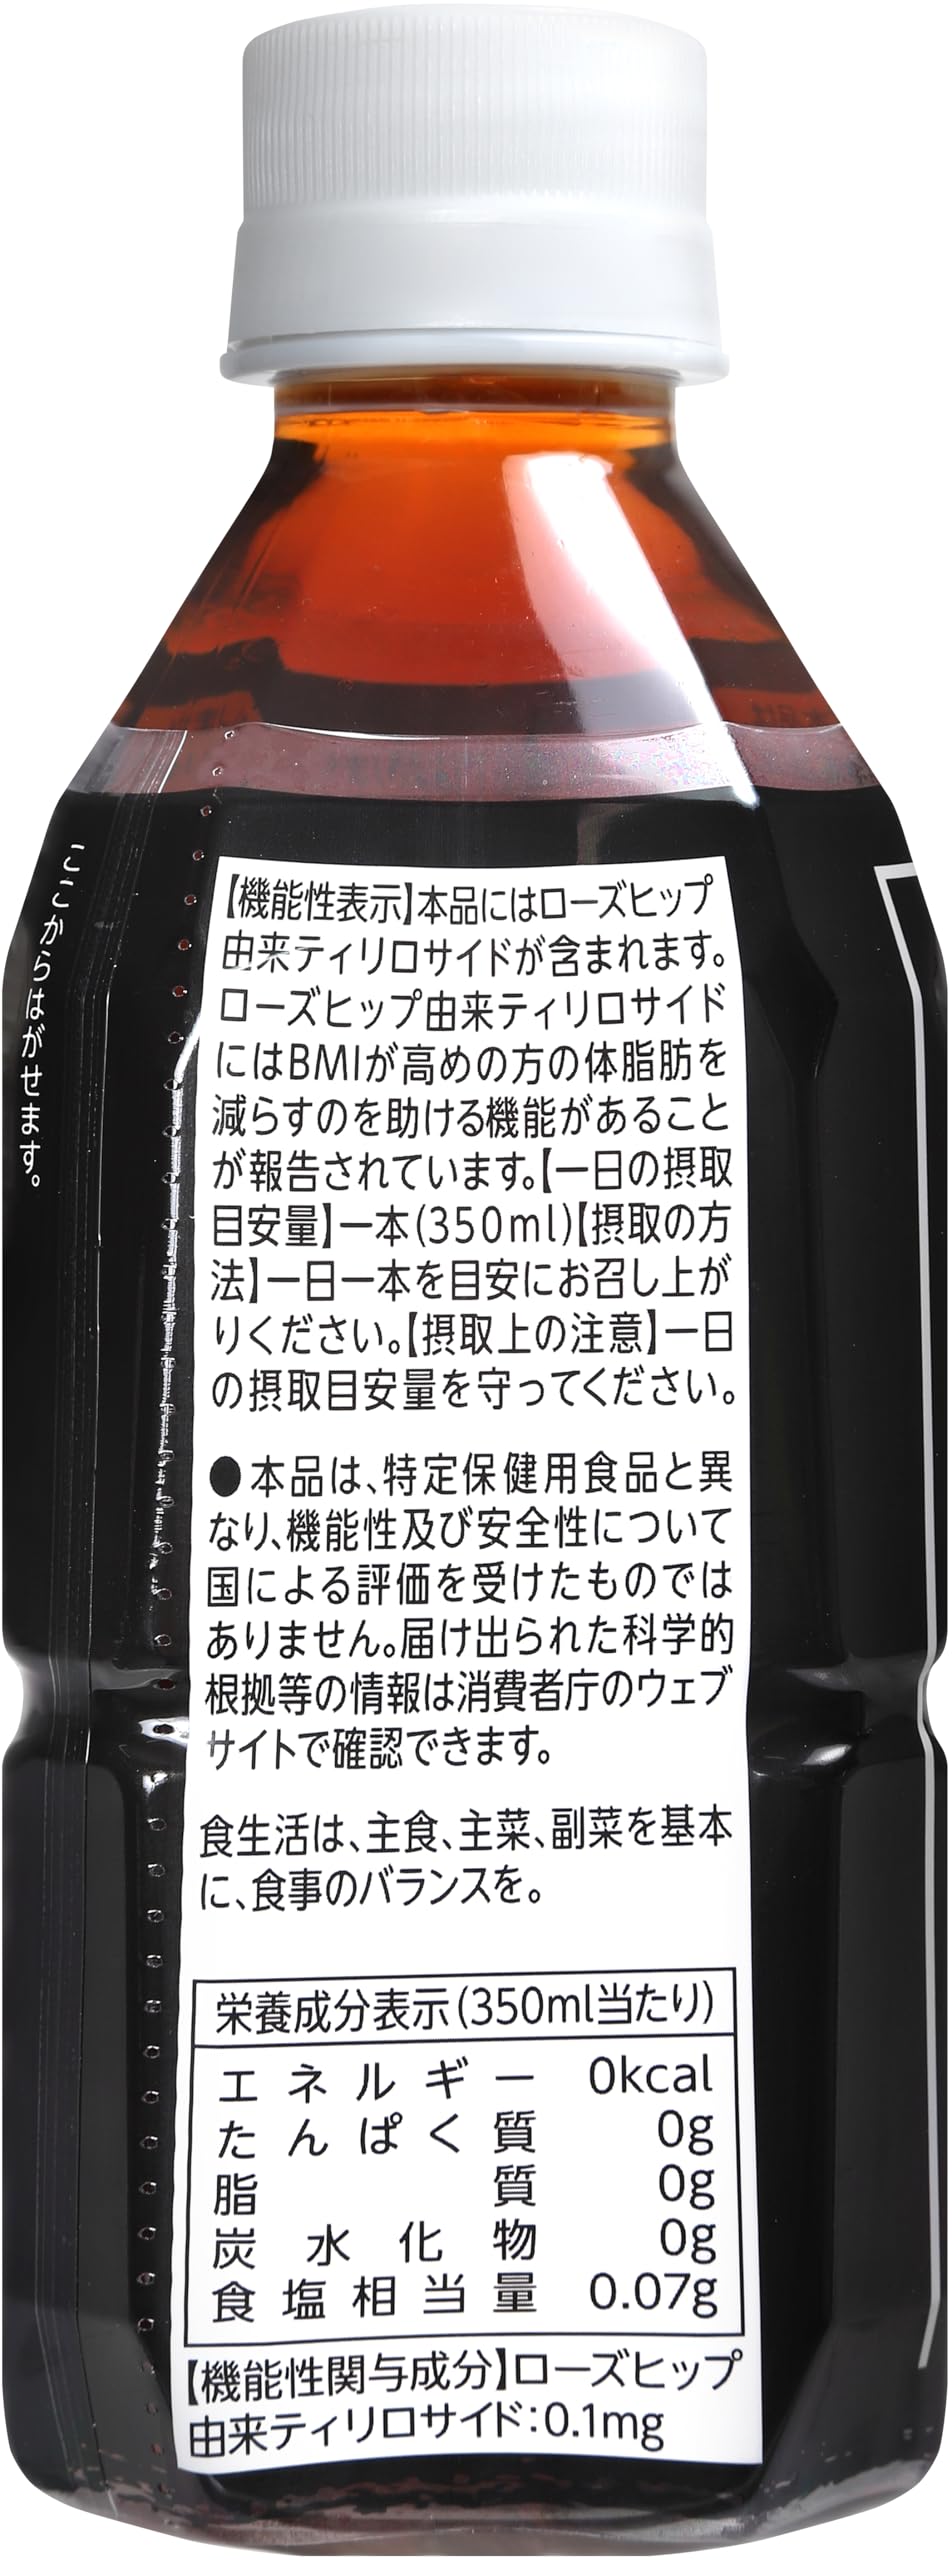 ここからはがせます。
【機能性表示】本品にはローズヒップ
由来ティリロサイドが含まれます。
ローズヒップ由来ティリロサイド
にはBMIが高めの方の体脂肪を
減らすのを助ける機能があること
が報告されています。【一日の摂取
目安量】一本(350ml)【摂取の方
法】一日一本を目安にお召し上が
りください。【摂取上の注意】一日
の摂取目安量を守ってください。
●本品は、特定保健用食品と異
なり、機能性及び安全性について
国による評価を受けたものでは
ありません。届け出られた科学的
根拠等の情報は消費者庁のウェブ
サイトで確認できます。
食生活は、主食、主菜、副菜を基本
に、食事のバランスを。
栄養成分表示(350ml当たり)
エネルギー 0kcal
たんぱく質 0g
脂質 0g
炭水化物 0g
食塩相当量 0.07g
【機能性関与成分】ローズヒップ
由来ティリロサイド:0.1mg